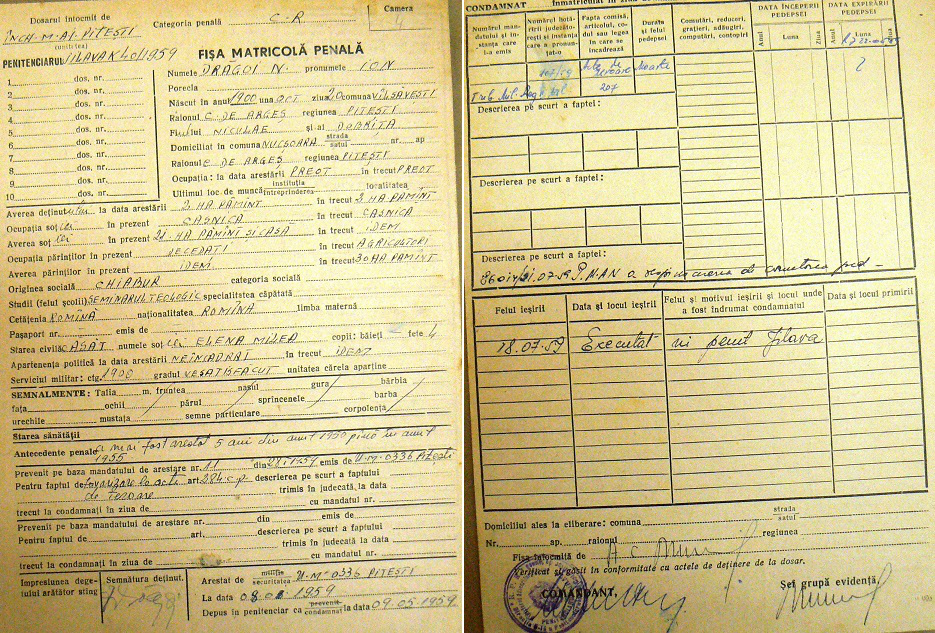 Dosarul întocmit de
ÎNCH-M.AI-PITEȘTI
(unitatea)
PENITENCIARUL JILAVA K 40/1959
Categoria penală C.R.
Camera
FIȘA MATRICOLĂ PENALĂ
1 dos. nr.
2 dos. nr.
3 dos. nr.
4 dos. nr.
5 dos. nr.
6 dos. nr.
7 dos. nr.
8 dos. nr.
9 dos. nr.
10 dos. nr.
Numele DRĂGOI N. pronumele ION
Porecla
Născut în anul 1900 una OCT ziua 20 comuna VÎLSĂVEȘTI
Raionul C. DE ARGEȘ regiunea PITEȘTI
Fiul NICULAE și al DOBRIȚA
Domiciliat în comuna NUCȘOARA strada satul nr. ap
Raionul C. DE ARGEȘ regiunea PITEȘTI
Ocupația: la data arestării PREOT în trecut PREOT
Ultimul loc de muncă: instituția întreprinderea localitatea
Averea deținut la data arestării 2 HA PĂMÎNT în trecut 2 HA PĂMÎNT
Ocupația soț iei în prezent CASNICĂ în trecut CASNICĂ
Averea soț iei în prezent HA PĂMÎNT ȘI CASA în trecut IDEM
Ocupația părinților în prezent DECEDAȚI în trecut AGRICULTORI
Averea părinților în prezent IDEM în trecut 30 HA PĂMÎNT
Originea socială CHIABUR categoria socială
Studii (felul școlii) SEMINARUL TEOLOGIC specialitatea căpătată
Cetățenia ROMÎNĂ naționalitatea ROMÎNĂ limba maternă
Pașaport nr. emis de
Starea civilă CĂSĂT. numele soț iei ELENA MILEA copii: băieți fete 4
Apartenența politică la data arestării NEÎNCADRAT în trecut IDEM
Serviciul militar: ctg. 1900 gradul NESATISFĂCUT unitatea căreia aparține
SEMNALMENTE: Talia m. fruntea nasul gura bărbia
fața ochii părul sprincenele barba
urechile mustața semne particulare corpolența
Starea sănătății
Antecedente penale a mai fost arestat 5 ani din anul 1950 pînă în anul
1955
Prevenit pe baza mandatului de arestare nr. 11 din 1959 emis de U.M. 0336 Pitești
Pentru faptul de favorizare la acte art 284 c.p. descrierea pe scurt a faptului
de teroare trimis în judecată, la data
trecut la condamnați în ziua de cu mandatul nr.
Prevenit pe baza mandatului de arestare nr. din emis de
Pentru faptul de art. descrierea pe scurt a faptului
trimis în judecată la data
trecut la condamnați în ziua de cu mandatul nr.
Impresiunea dege-
tului arătător sting
Semnătura deținut.
Arestat de miliție securitatea U.M. 0336 PITEȘTI
La data 1959
Depus în penitenciar ca prevenit condamnat la data 09.05.1959
CONDAMNAT
Numărul man-
datului și in-
stanța care
l-a emis
Numărul hotă-
rîrii judecăto-
rești și instanța
care a pronun-
țat-o
Fapta comisă,
articolul, co-
dul sau legea
în care se
încadrează
Durata
și felul
pedepsei
Comutări, reduceri,
grațieri, adăugiri,
computări, contopiri
DATA ÎNCEPERII
PEDEPSEI
Anul Luna Ziua
DATA EXPIRĂRII
PEDEPSEI
Anul Luna
Acte de teroare
207
Moarte
Descrierea pe scurt a faptei:
Descrierea pe scurt a faptei:
Descrierea pe scurt a faptei:
Felul ieșirii
Data și locul ieșirii
Felul și motivul ieșirii și locul unde
a fost îndrumat condamnatul
Data și locul primirii
18.07.59 Executat penit Jilava
Domiciliul ales la eliberare: comuna strada satul
Nr. ap. raionul regiunea
Fișa întocmită de
Verificat și găsit în conformitate cu actele de deținere de la dosar.
COMANDANT,
Șef grupă evidență,